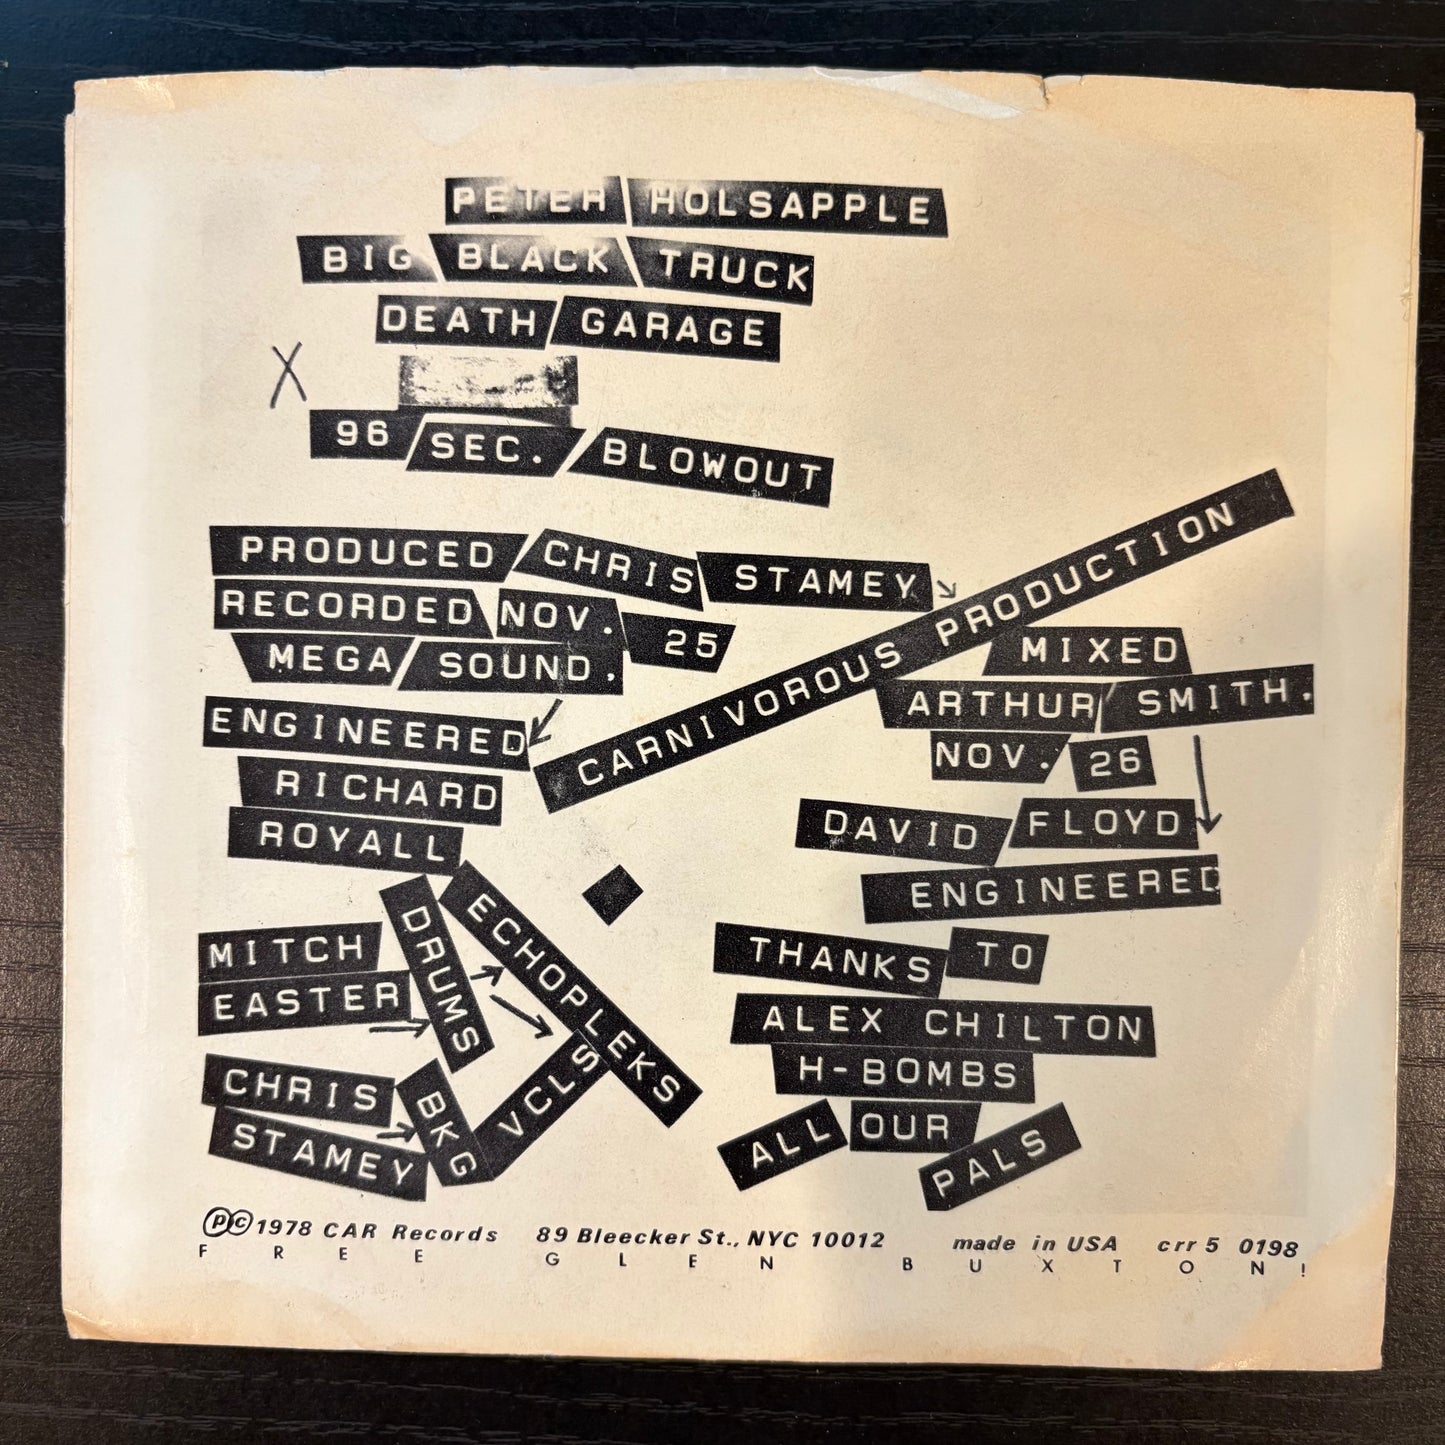 PETER HOLSAPPLE
BIG BLACK TRUCK
DEATH GARAGE
X
96 SEC. BLOWOUT
PRODUCED CHRIS STAMEY
RECORDED NOV. 25
MEGA SOUND.
ENGINEERED
RICHARD
ROYALL
CARNIVOROUS PRODUCTION
MIXED
ARTHUR SMITH.
NOV. 26
DAVID FLOYD
ENGINEERED
MITCH
EASTER
DRUMS
ECHOPLEKS
CHRIS
STAMEY
BKG
VCLS
THANKS TO
ALEX CHILTON
H-BOMBS
ALL OUR
PALS
℗©1978 CAR Records 89 Bleecker St., NYC 10012 made in USA crr 5 0198
FREE GLEN BUXTON!